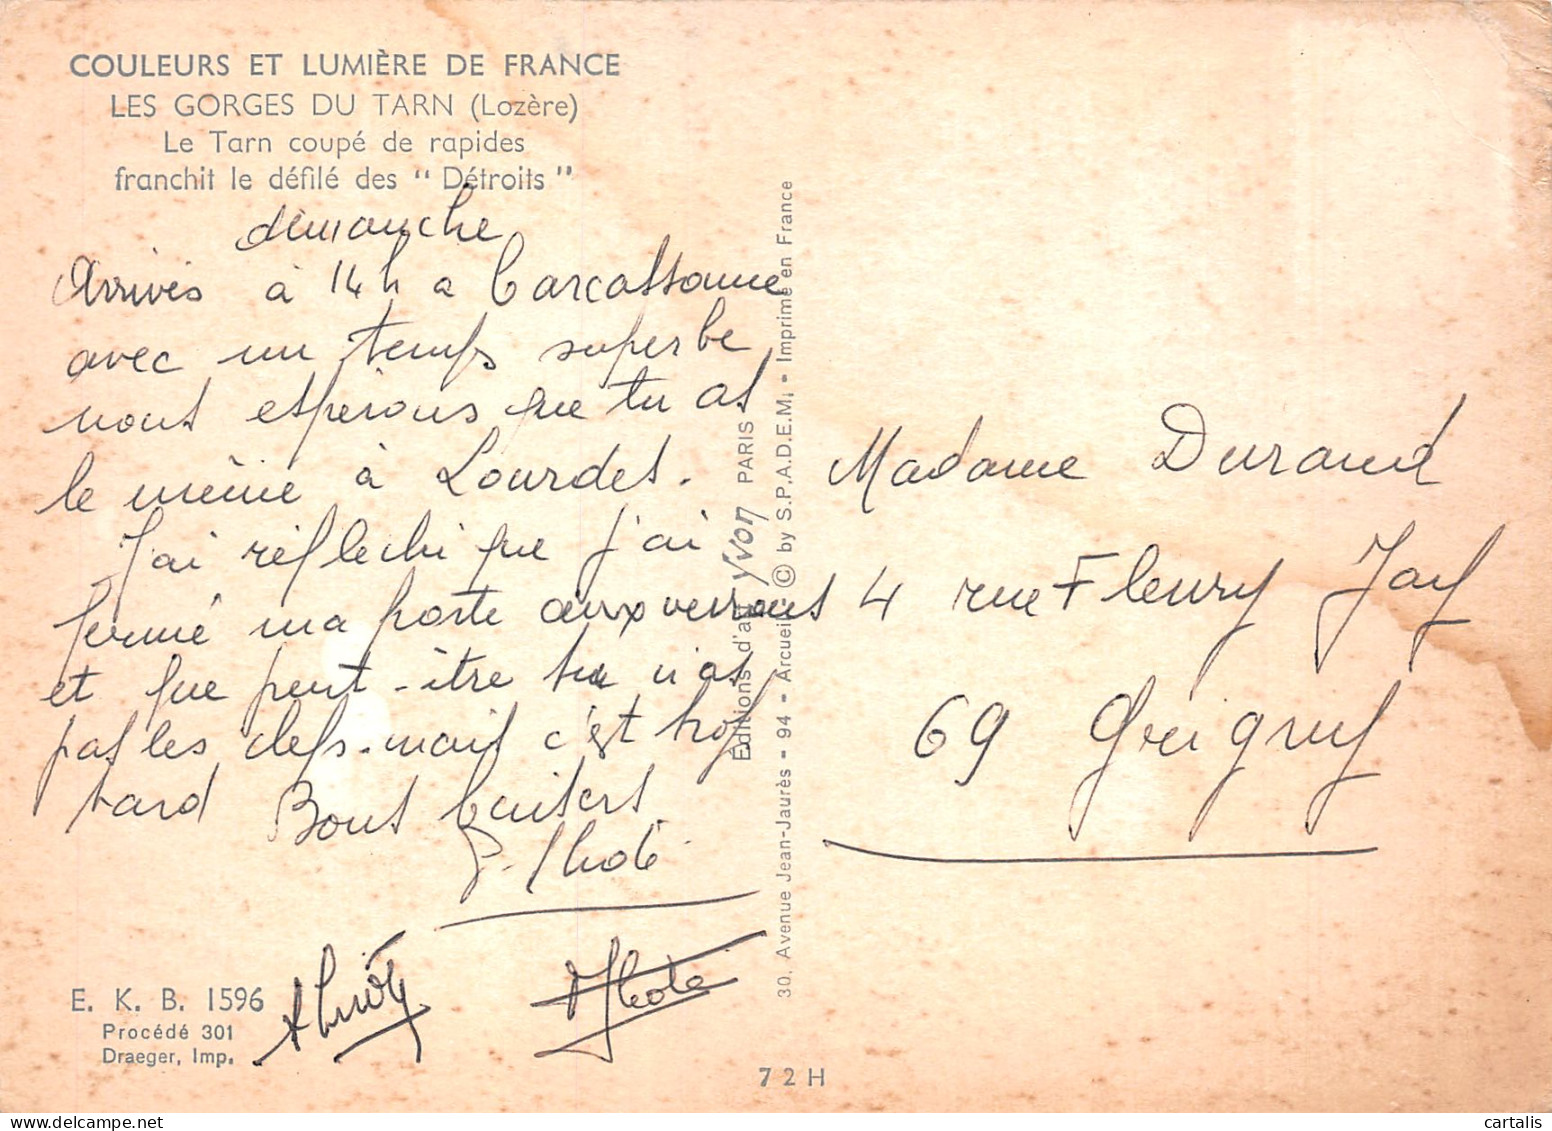 COULEURS ET LUMIÈRE DE FRANCE
LES GORGES DU TARN (Lozère)
Le Tarn coupé de rapides
franchit le défilé des "Détroits"
dimanche
Arrivés à 14h a Carcassonne
avec un temps superbe
nous espérons que tu as
le même à Lourdes.
J'ai réfléchi que j'ai
fermé ma porte aux verrous
et que peut-être tu n'as
pas les clefs. mais c'est trop
tard Bons baisers
E. K. B. 1596
Procédé 301
Draeger, Imp.
Éditions d'art Yvon PARIS
30, Avenue Jean-Jaurès - 94 - Arcueil - © by S.P.A.D.E.M. - Imprimé en France
72H
Madame Durand
4 rue Fleury Jay
69 Grigny
cartalis